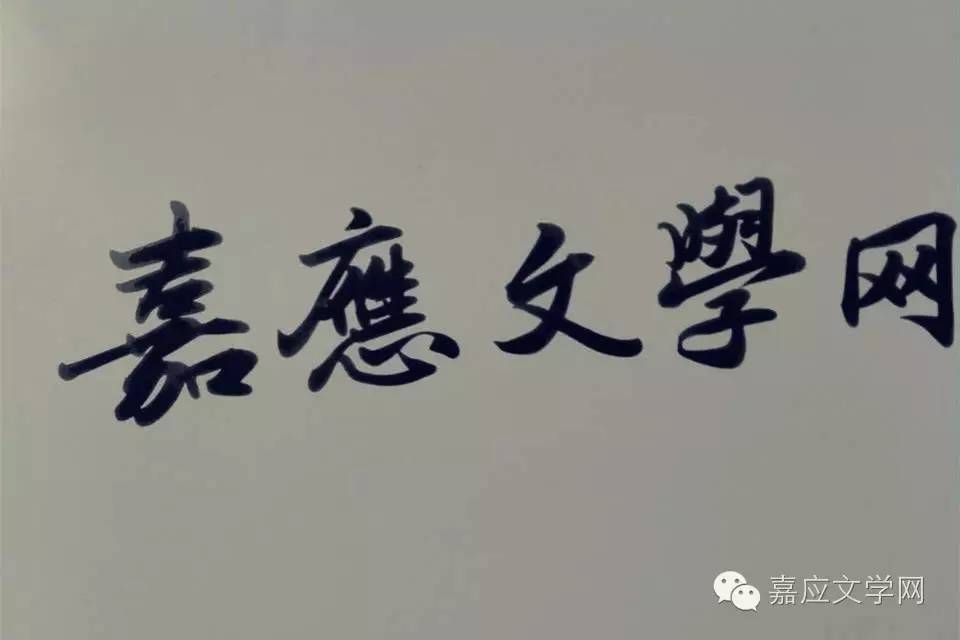 嘉應文學网
嘉应文学网